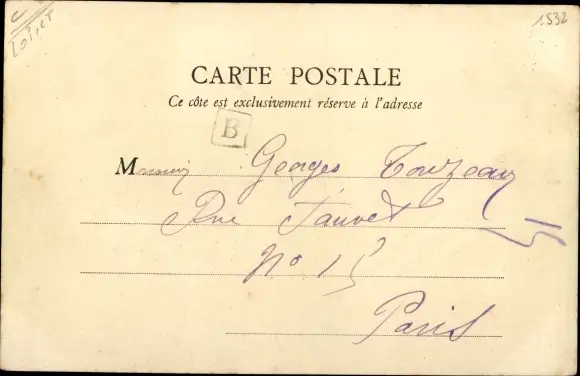 Loiret
1.532
CARTE POSTALE
Ce côte est exclusivement réserve à l'adresse
B
Monsieur Georges Touzeau
Rue Fauvet
No 15
Paris